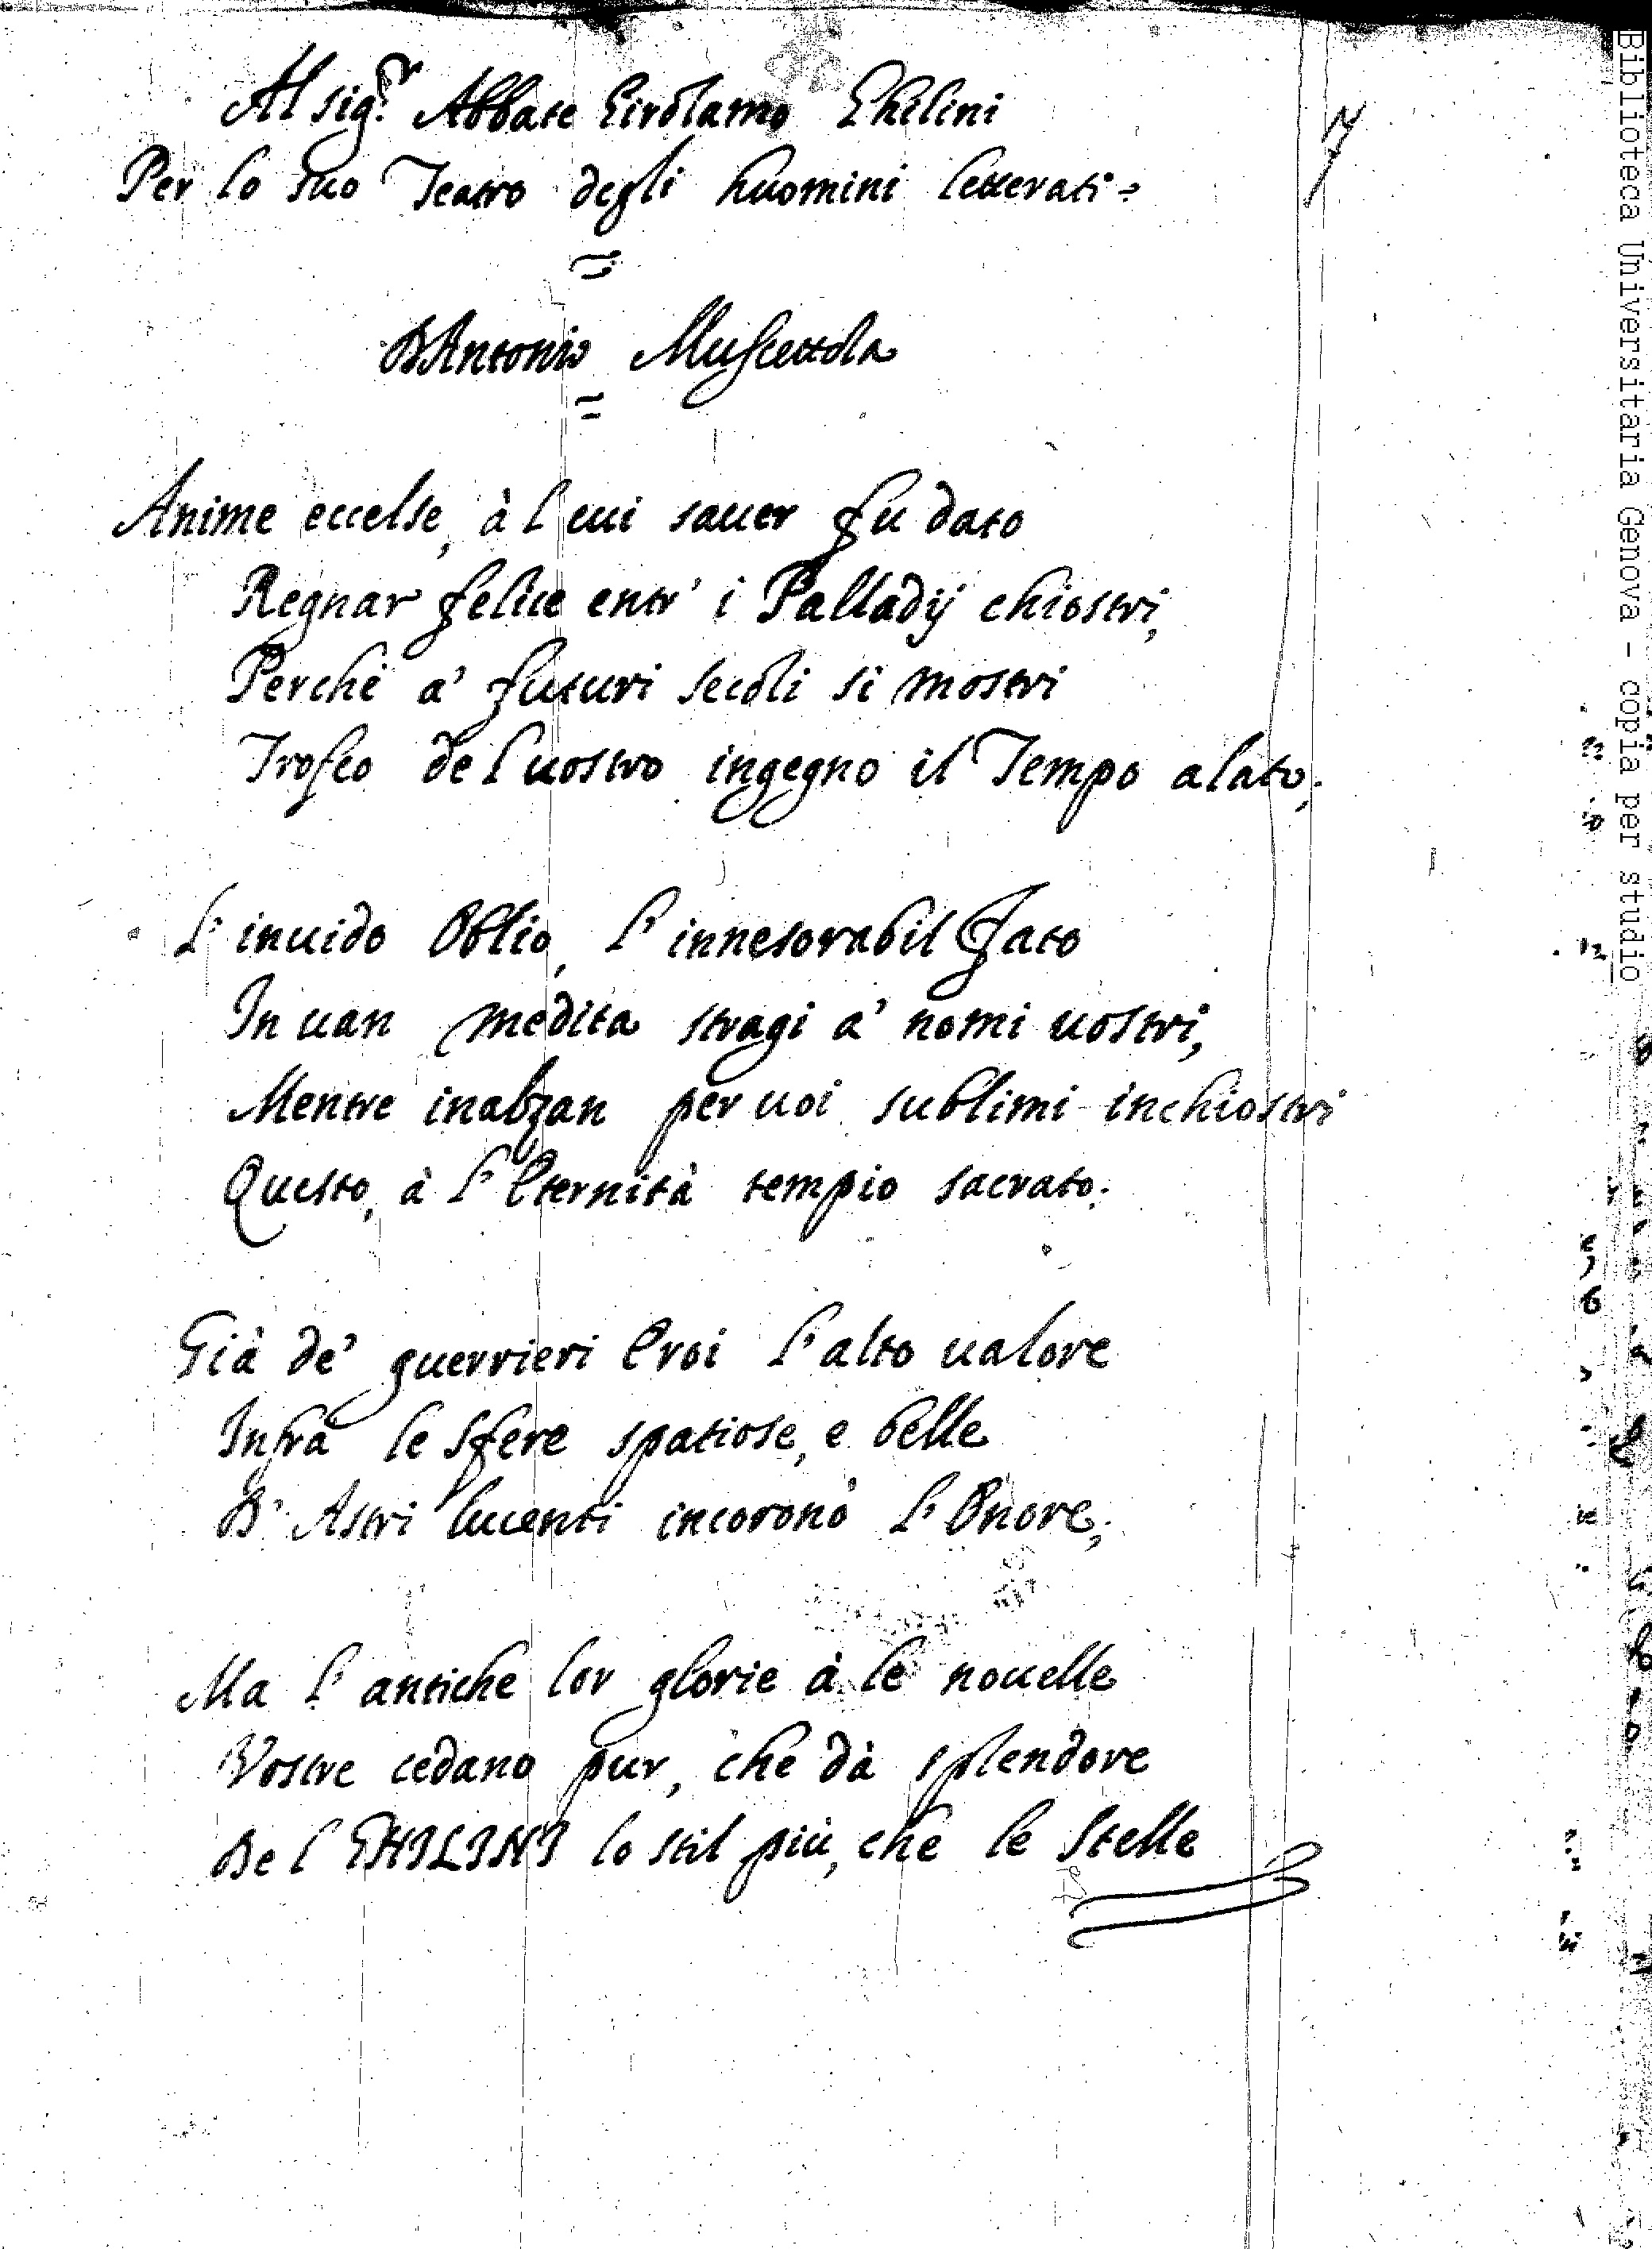 Al sig.r Abbate Girolamo Ghilini
7
Per lo suo Teatro degli huomini letterati
D'Antonio Muscettola
Anime eccelse, à l cui sauer fu dato
Regnar felice entr' i Palladij chiostri,
Perche a' futuri secoli si mostri
Trofeo del uostro ingegno il Tempo alato;
L' inuido Oblio, l' innesorabil Fato
In uan medita stragi a' nomi uostri,
Mentre inalzan per uoi sublimi inchiostri
Questo, à l' Eternità tempio sacrato.
Già de' guerrieri Eroi l' alto ualore
Infrà le sfere spatiose, e belle
D' Astri lucenti incoronò l' Onore;
Ma l' antiche lor glorie à le nouelle
Vostre cedano pur, che dà splendore
De l GHILINI lo stil più, che le Stelle
Biblioteca Universitaria Genova - copia per studio